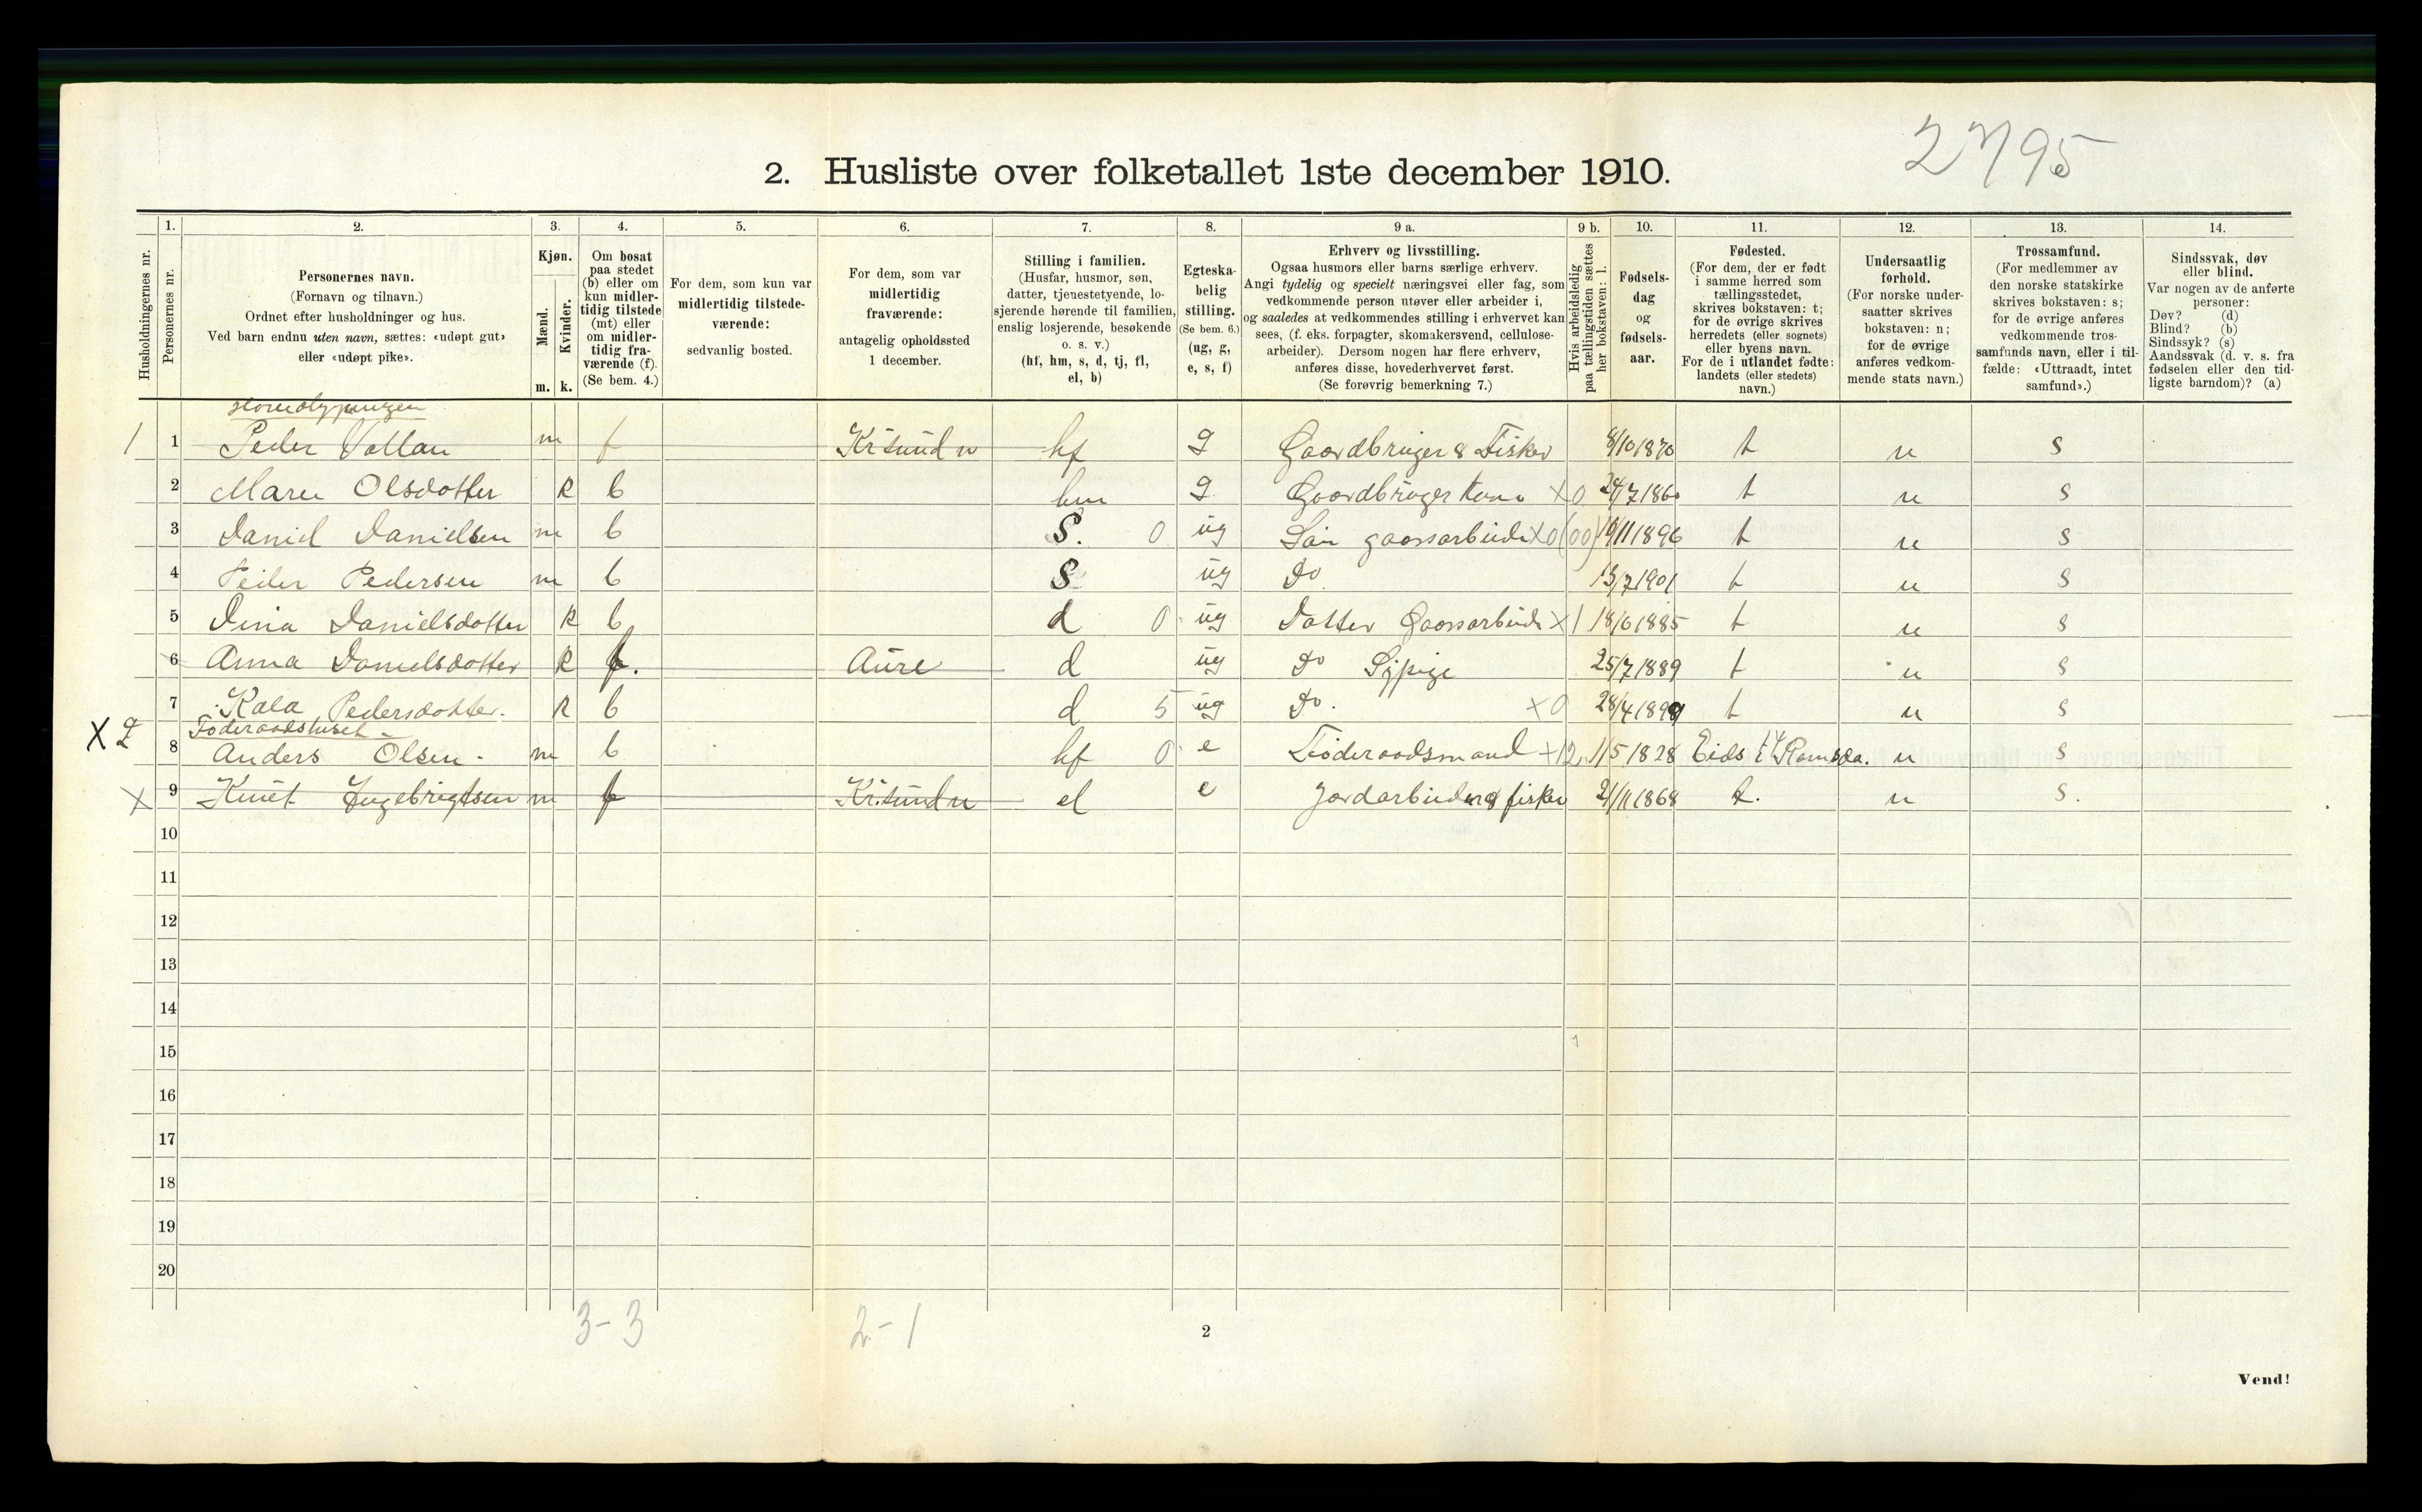 2795
2. Husliste over folketallet 1ste december 1910.
Husholdningernes nr.
1.
Personernes nr.
2.
Personernes navn.
(Fornavn og tilnavn.)
Ordnet efter husholdninger og hus.
Ved barn endnu uten navn, sættes: «udøpt gut»
eller «udøpt pike».
3.
Kjøn.
Mænd.
Kvinder.
m. k.
4.
Om bosat
paa stedet
(b) eller om
kun midler-
tidig tilstede
(mt) eller
om midler-
tidig fra-
værende (f).
(Se bem. 4.)
5.
For dem, som kun var
midlertidig tilstede-
værende:
sedvanlig bosted.
6.
For dem, som var
midlertidig
fraværende:
antagelig opholdssted
1 december.
7.
Stilling i familien.
(Husfar, husmor, søn,
datter, tjenestetyende, lo-
sjerende hørende til familien,
enslig losjerende, besøkende
o. s. v.)
(hf, hm, s, d, tj, fl,
el, b)
8.
Egteska-
belig
stilling.
(Se bem. 6.)
(ug, g,
e, s, f)
9 a.
Erhverv og livsstilling.
Ogsaa husmors eller barns særlige erhverv.
Angi tydelig og specielt næringsvei eller fag, som
vedkommende person utøver eller arbeider i,
og saaledes at vedkommendes stilling i erhvervet kan
sees, (f. eks. forpagter, skomakersvend, cellulose-
arbeider). Dersom nogen har flere erhverv,
anføres disse, hovederhvervet først.
(Se forøvrig bemerkning 7.)
9 b.
Hvis arbeidsledig
paa tællingstiden sættes
her bokstaven: l.
10.
Fødsels-
dag
og
fødsels-
aar.
11.
Fødested.
(For dem, der er født
i samme herred som
tællingsstedet,
skrives bokstaven: t;
for de øvrige skrives
herredets (eller sognets)
eller byens navn.
For de i utlandet fødte:
landets (eller stedets)
navn.)
12.
Undersaatlig
forhold.
(For norske under-
saatter skrives
bokstaven: n;
for de øvrige
anføres vedkom-
mende stats navn.)
13.
Trossamfund.
(For medlemmer av
den norske statskirke
skrives bokstaven: s;
for de øvrige anføres
vedkommende tros-
samfunds navn, eller i til-
fælde: «Uttraadt, intet
samfund».)
14.
Sindssvak, døv
eller blind.
Var nogen av de anførte
personer:
Døv? (d)
Blind? (b)
Sindssyk? (s)
Aandssvak (d. v. s. fra
fødselen eller den tid-
ligste barndom)? (a)
1 1 Peder Vollan m f Kr.sund n hf g Gaardbruger & Fisker 8/10 1870 t n s
2 Maren Olsdotter k b hm g Gaardbruger kone X0 24/7 1860 t n s
3 Daniel Danielsen m b S. 0 ug Søn gaardsarbeide X0(00) 19/11 1896 t n s
4 Peder Pedersen m b S ug Do 13/7 1901 t n s
5 Dina Danielsdotter k b d 0 ug Datter Gaardsarbeide X1 18/6 1885 t n s
6 Anna Danielsdotter k f. Aure d ug Do Sypige 25/7 1889 t n s
7 Kala Pedersdotter. k b d 5 ug Do. X0 28/4 1899 t n s
Føderaadshuset
X 2 8 Anders Olsen - m b hf 0 e Føderaadsmand +12, 1/5 1828 Eids Romsda. n s
X 9 Knut Ingebrigtsen m f Kr.sund n el e Jordarbeider & fisker 21/11 1868 t. n s.
10
11
12
13
14
15
16
17
18
19
20
3-3 2-1
2
Vend!